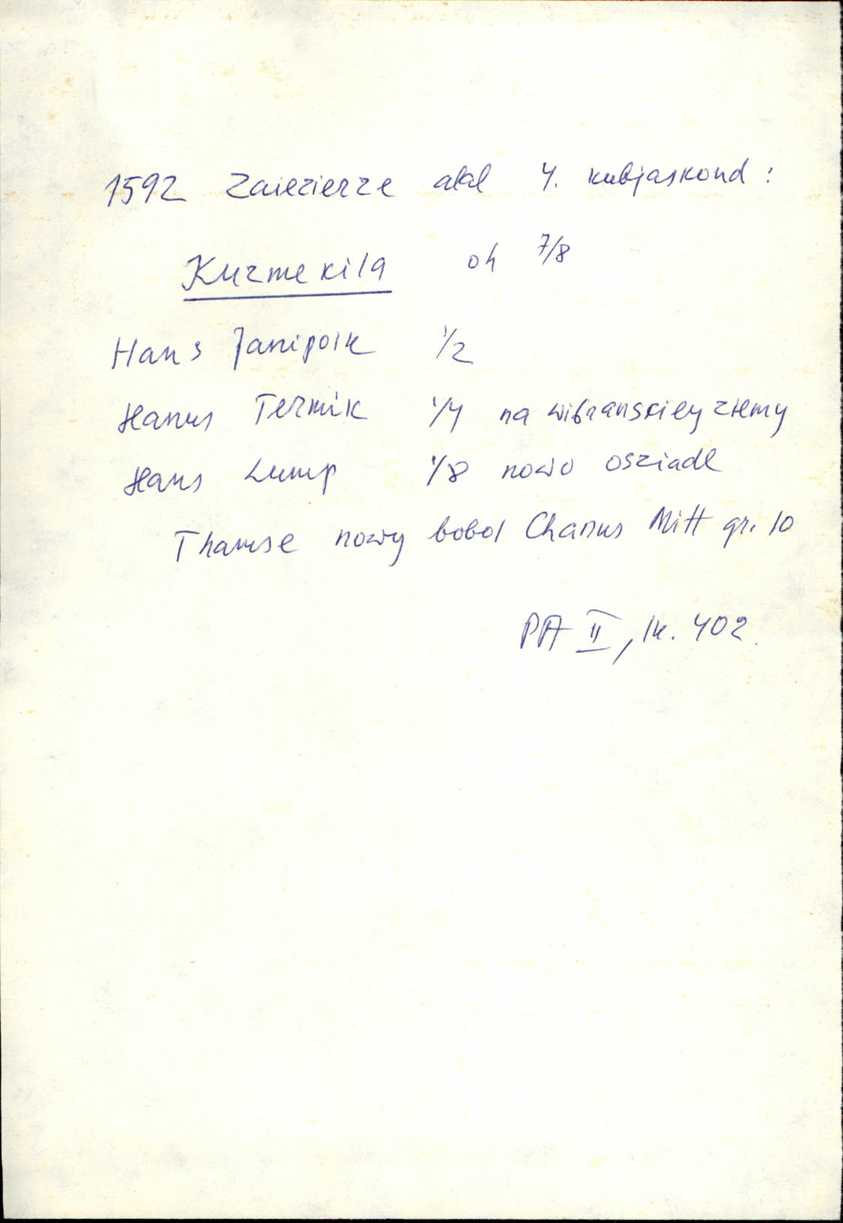 1592 Zaiezierze alal 4. kubjaskond:
Kuzmekila oh 7/8
Hans Janipoik 1/2
Hanus Termik 1/4 na wibranskiey ziemy
Hans Lump 1/8 nowo osziadl
Thamse nowy bobol Chanus Mitt gr. 10
PA II, lk. 402.